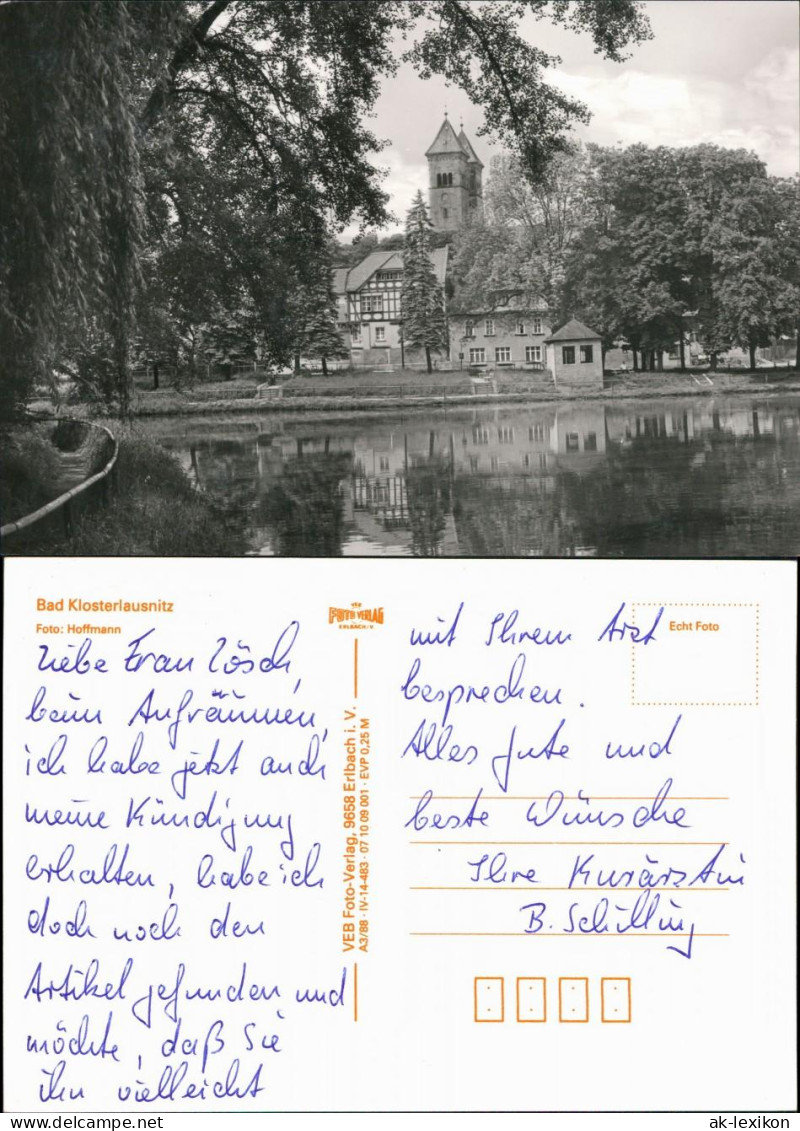 Bad Klosterlausnitz
Foto: Hoffmann
FOTO VERLAG
ERLBACH/V
Liebe Frau Lösch,
beim Aufräumen,
ich habe jetzt auch
meine Kündigung
erhalten, habe ich
doch noch den
Artikel gefunden und
möchte, daß Sie
ihn vielleicht
VEB Foto-Verlag, 9658 Erlbach i. V.
A3/88 · IV-14-483 · 07 10 09 001 · EVP 0,25 M
Echt Foto
mit Ihrem Arzt
besprechen.
Alles Gute und
beste Wünsche
Ihre Kurärztin
B. Schilling
delcampe.net
ak-lexikon